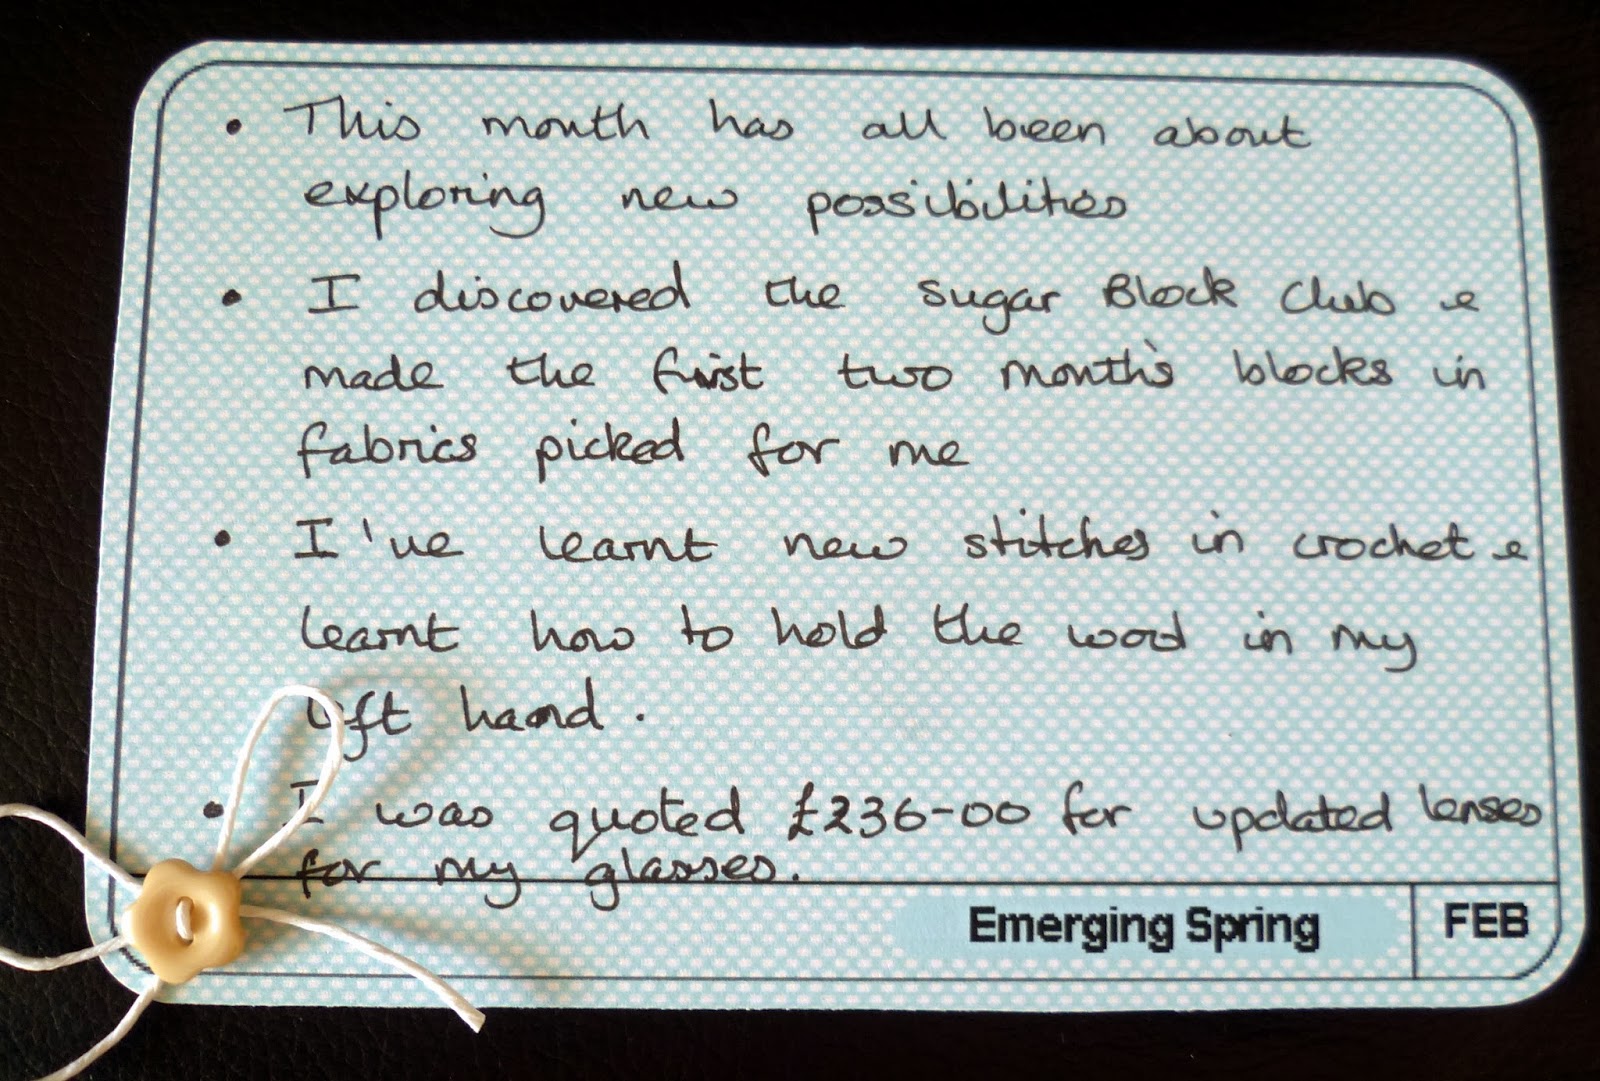 • This month has all been about
exploring new possibilities
• I discovered the Sugar Block Club &
made the first two month's blocks in
fabrics picked for me
• I've learnt new stitches in crochet &
learnt how to hold the wool in my
left hand.
• I was quoted £236-00 for updated lenses
for my glasses.
Emerging Spring
FEB